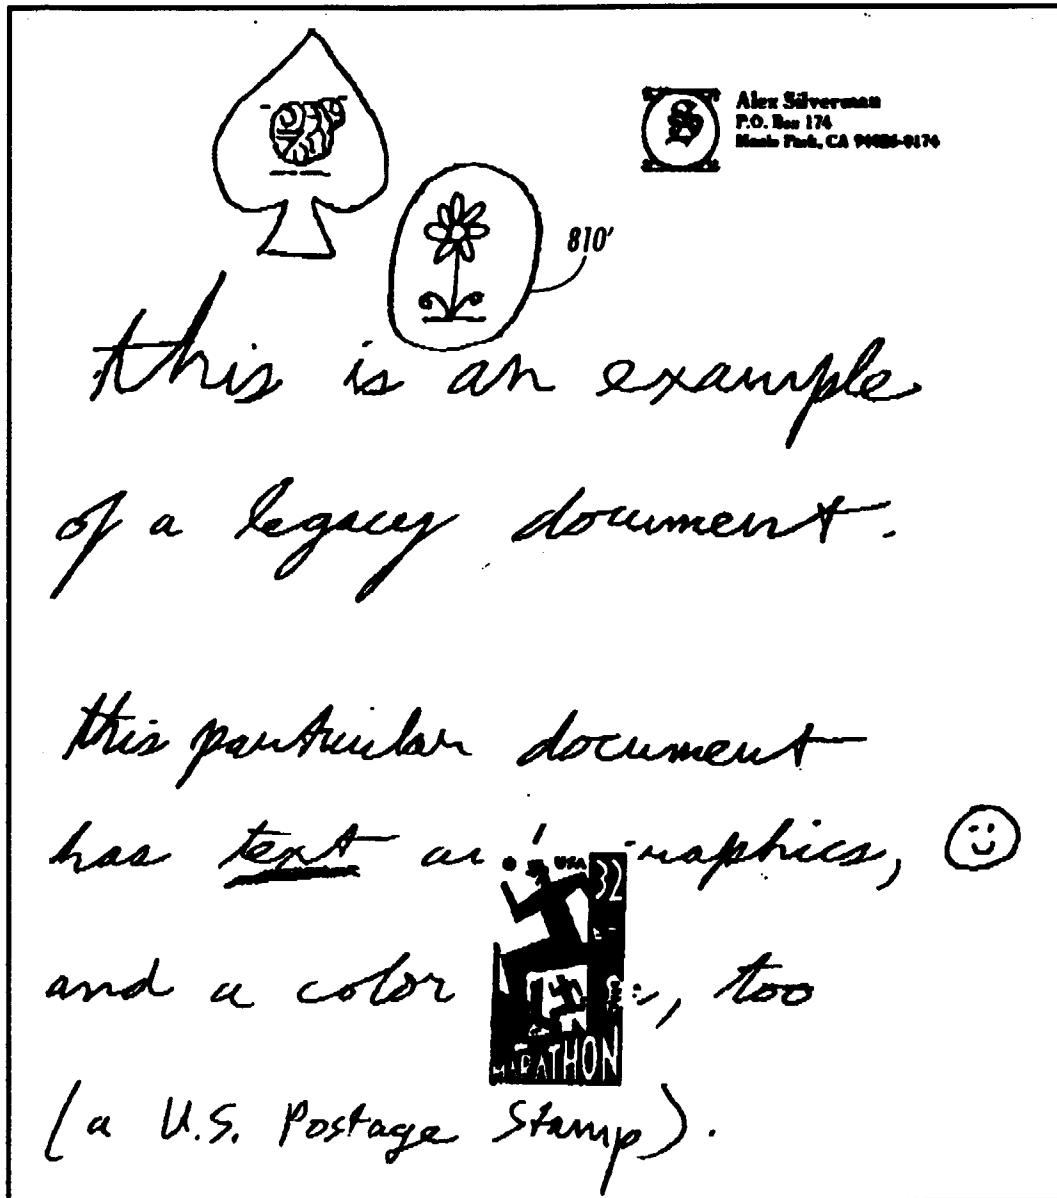 Alex Silverman
P.O. Box 174
Menlo Park, CA 94026-0174
S
810'
this is an example
of a legacy document.
this particular document
has text an raphics,
USA
32
and a color , too
MARATHON
(a U.S. Postage Stamp).